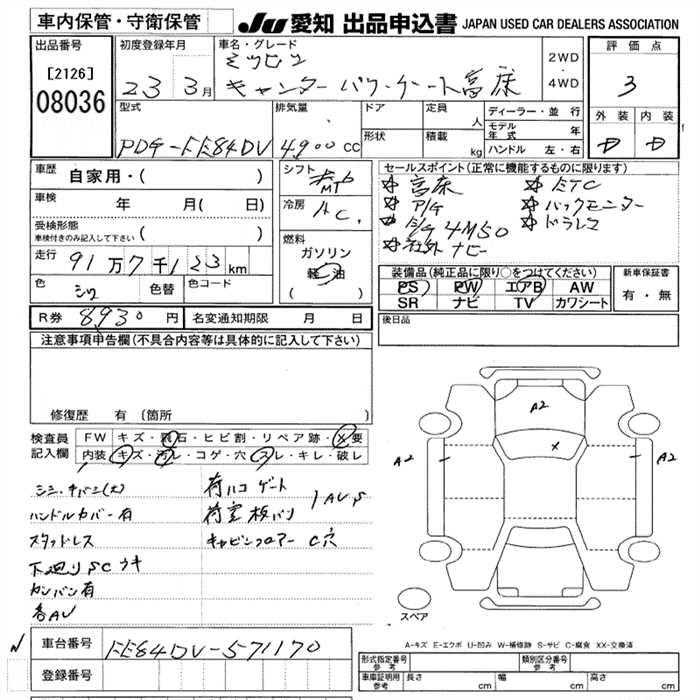 車内保管・守衛保管
JU 愛知 出品申込書 JAPAN USED CAR DEALERS ASSOCIATION
出品番号
[2126]
08036
初度登録年月
23 3月
車名・グレード
ミツビシ
キャンター パワーゲート高床
2WD
・
4WD
評価点
3
外装 内装
D D
型式
PDG-FE84DV
排気量
4900 CC
ドア
形状
定員 人
積載 kg
ディーラー・並 行
モデル年式 年
ハンドル 左・右
車歴
自家用・( )
車検
年 月( 日)
受検形態
車検付きのみ記入して下さい ( )
走行
91万7千123km
色
シロ
色替
色コード
シフト
MT6
冷房
AC
燃料
ガソリン
軽油
( )
セールスポイント(正常に機能するものに限ります)
☆高床 ☆ETC
☆P/G ☆バックモニター
☆E/G 4M50 ☆ドラレコ
☆社外ナビー
装備品(純正品に限り○をつけてください)
PS PW エアB AW
SR ナビ TV カワシート
新車保証書
有・無
R券 8930円
名変通知期限 月 日
後日品
注意事項申告欄(不具合内容等は具体的に記入して下さい)
修復歴 有(箇所 )
検査員
記入欄
FW キズ・飛石・ヒビ割・リペア跡・X要
内装 キズ・汚レ・コゲ・穴・スレ・キレ・破レ
ハンドルカバー有
スタッドレス
下廻りSCサキ
カンバン有
各AU
荷ハコ ゲート
荷室板バリ
キャビンフロアー C穴
A2
X
A2
A2
スペア
A-キズ E-エクボ U-凹み W-補修跡 S-サビ C-腐食 XX-交換済
車台番号 FE84DV-571170
登録番号
形式指定番号 参考
類別区分番号 参考
車庫証明用 参考
長さ cm
幅 cm
高さ cm